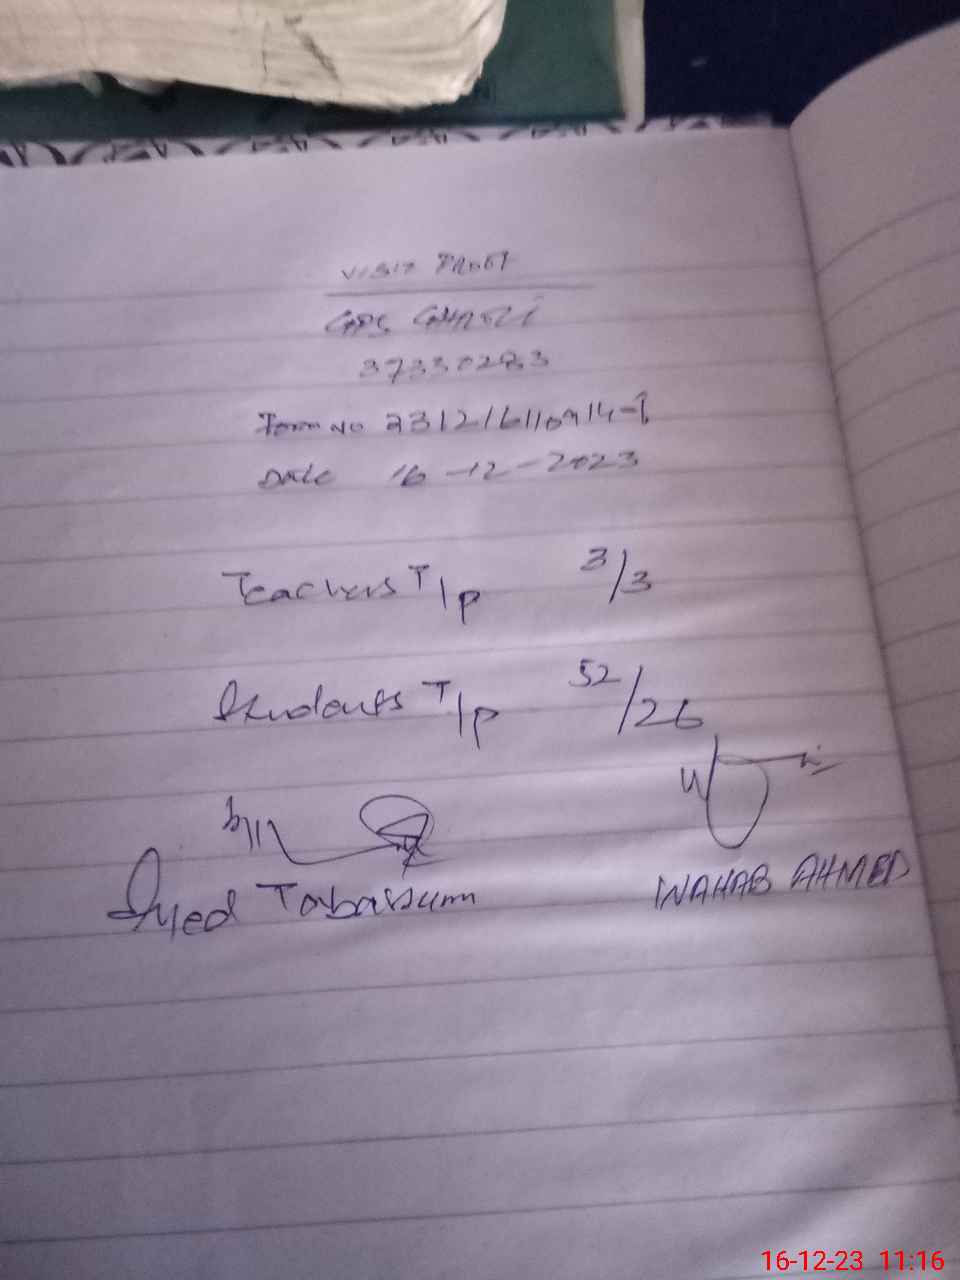 VISIT PROOF
GPS
37330283
Form No 231216110914-1
Date 16-12-2023
Teachers T/p 3/3
Students T/p 52/26
Syed Tabassum
WAHAB AHMED
16-12-23 11:16